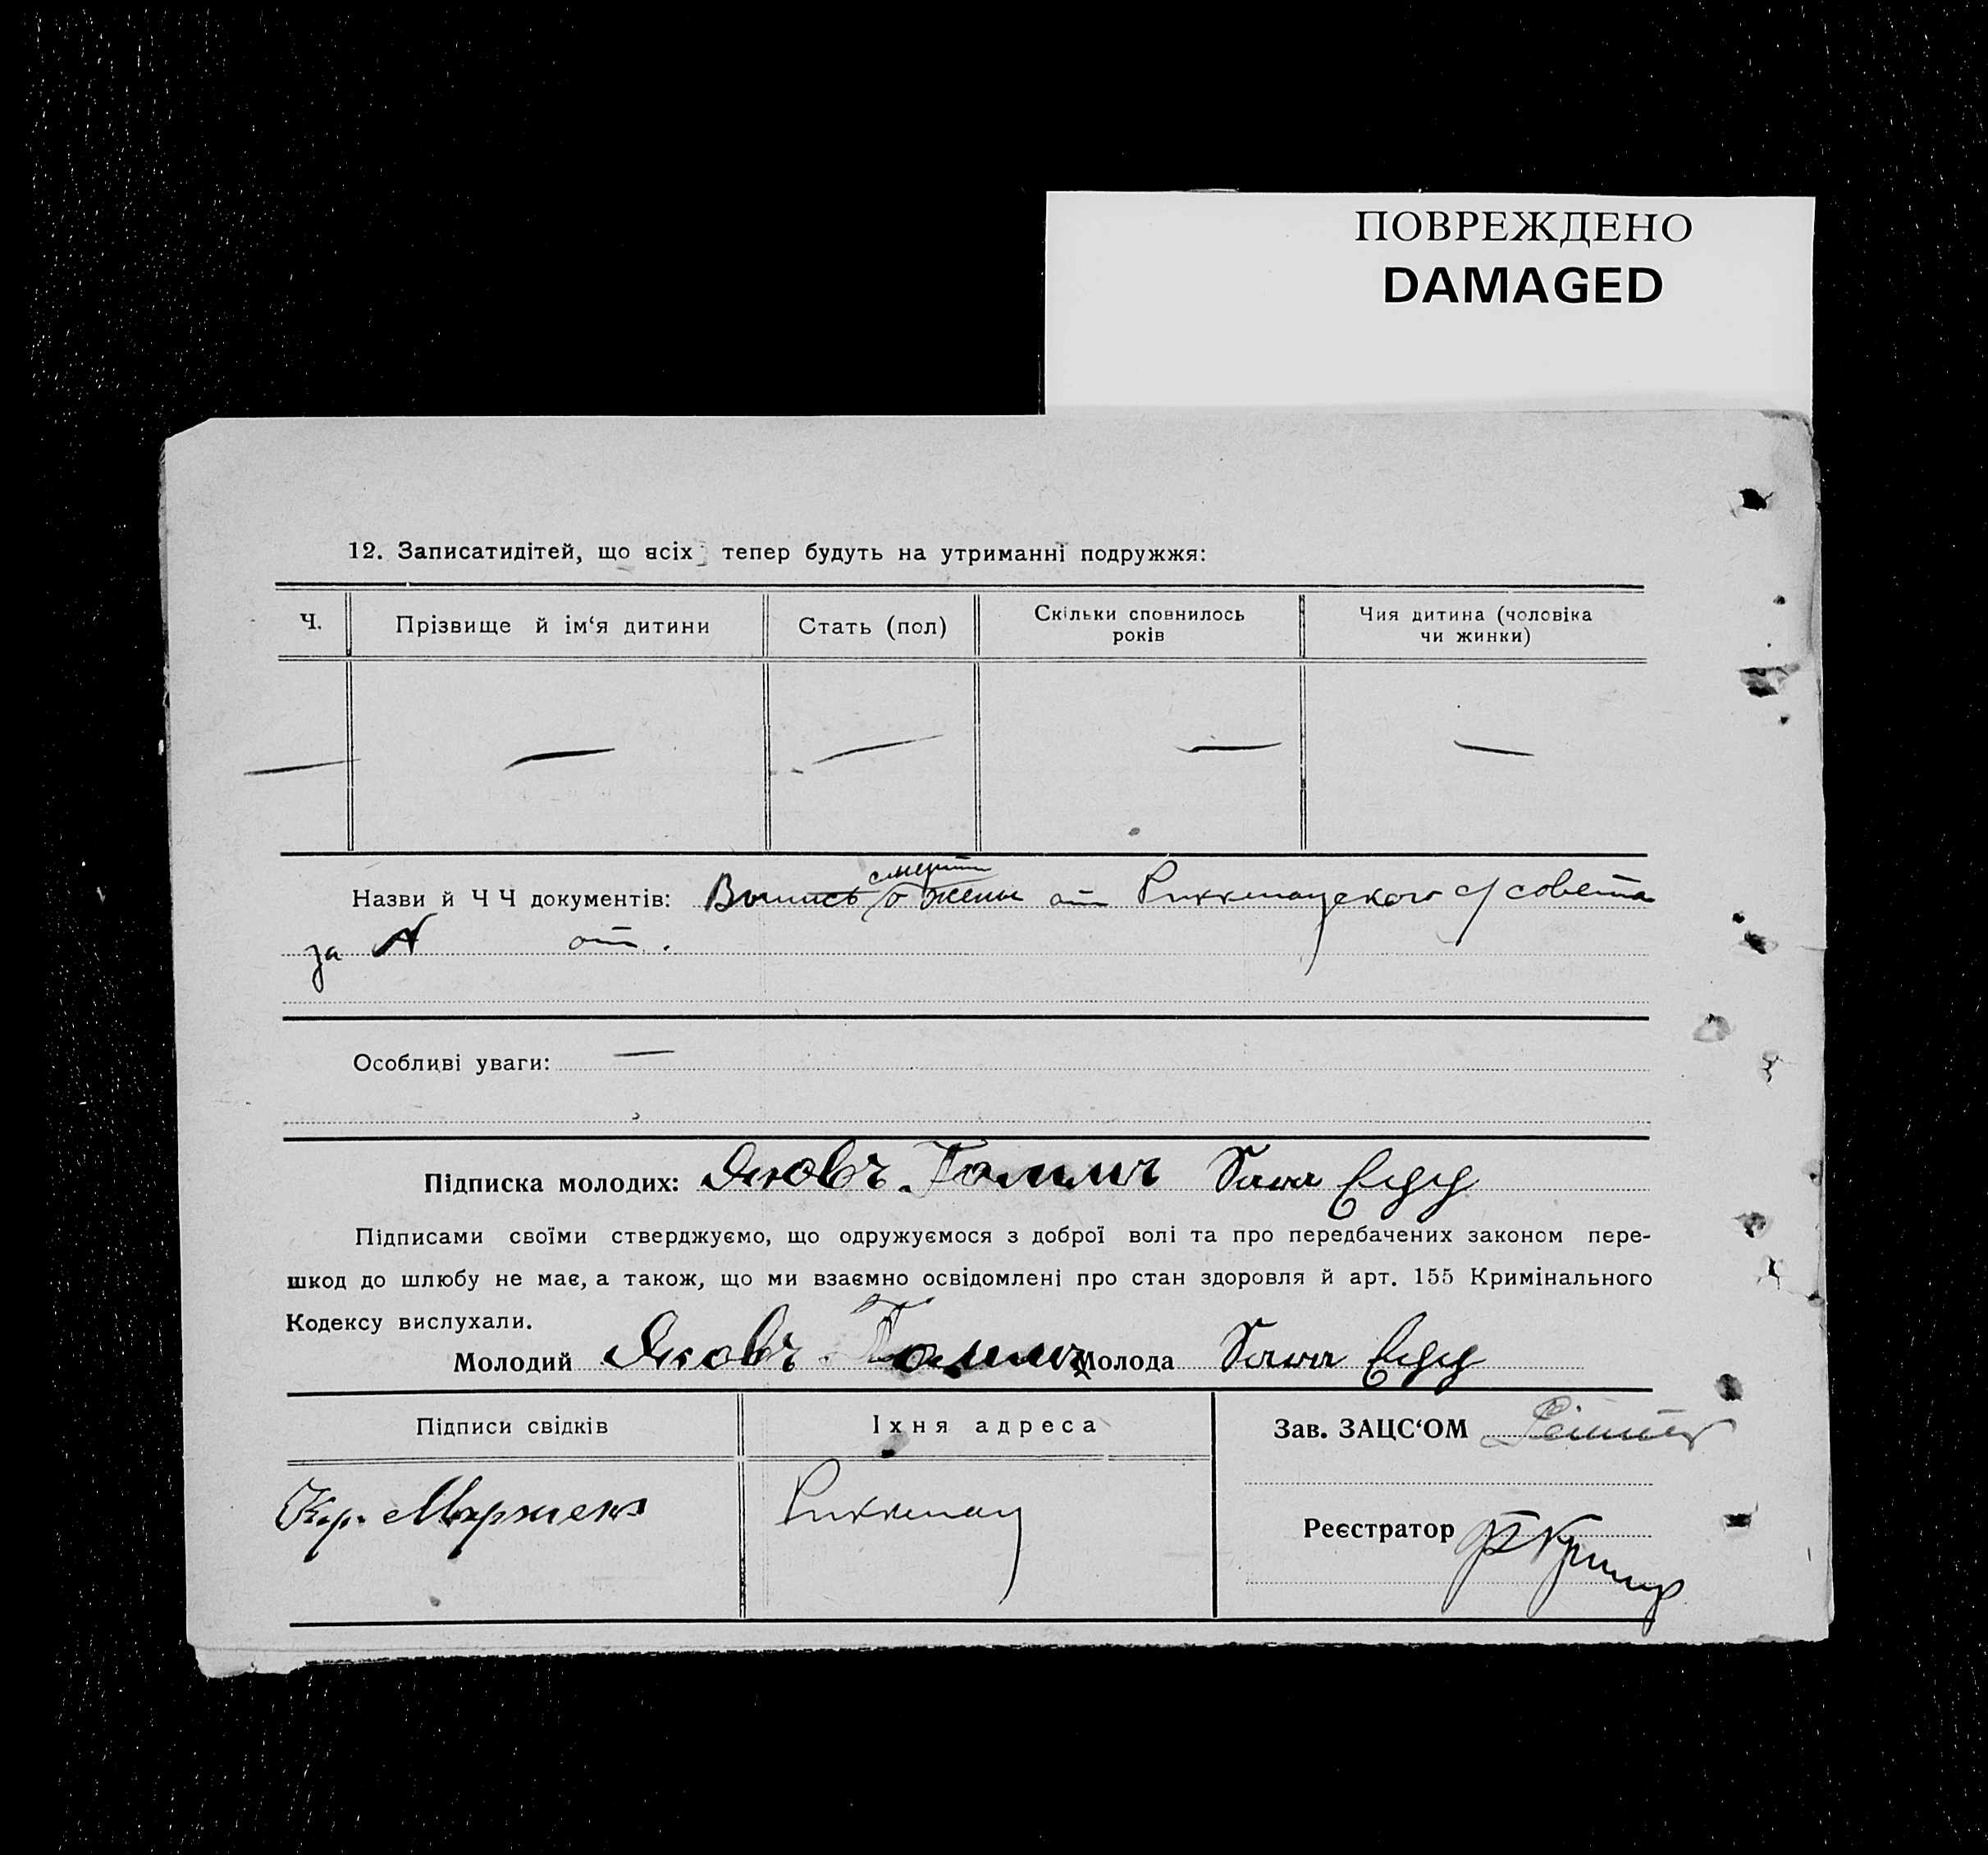 ПОВРЕЖДЕНО
DAMAGED
12. Записатидітей, що всіх тепер будуть на утриманні подружжя:
Ч.
Прізвище й ім‘я дитини
Стать (пол)
Скільки сповнилось
років
Чия дитина (чоловіка
чи жинки)
смерти
Назви й Ч Ч документів: Выпись о жены от Риккенауского с/совета
за N от .
Особливі уваги: —
Підписка молодих: Яковъ
Підписами своїми стверджуємо, що одружуємося з доброї волі та про передбачених законом пере-
шкод до шлюбу не має, а також, що ми взаємно освідомлені про стан здоровля й арт. 155 Кримінального
Кодексу вислухали.
Молодий Яковъ Молода
Підписи свідків
Їхня адреса
Зав. ЗАЦС‘ОМ
Рикенау
Реєстратор